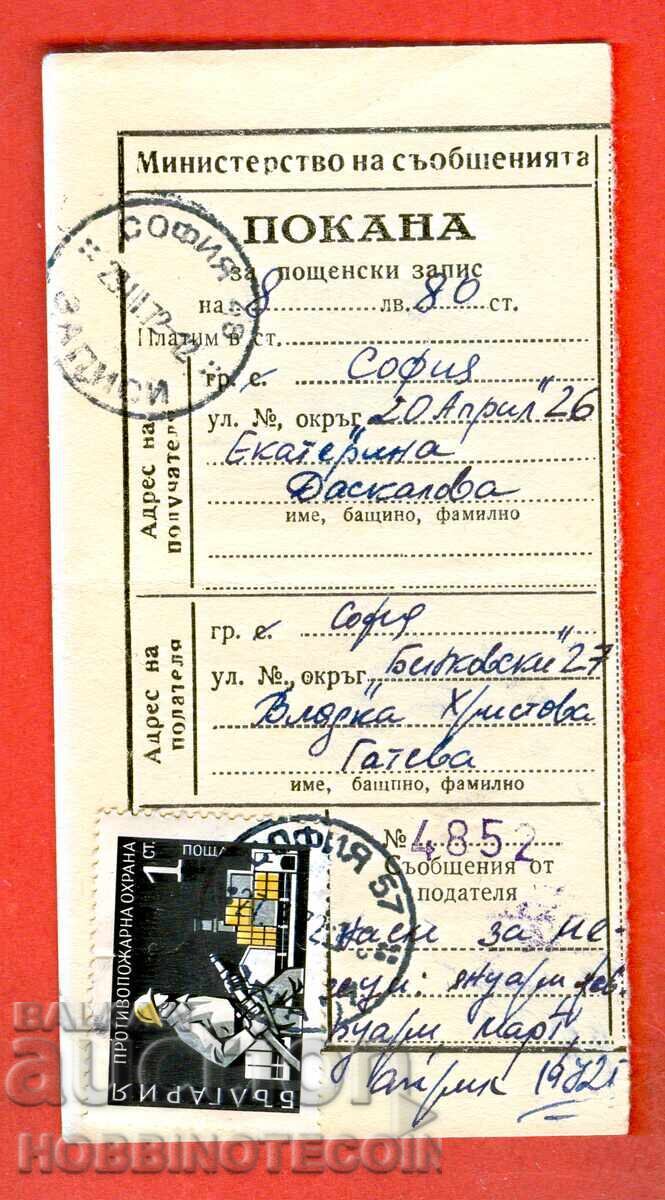 Министерство на съобщенията
ПОКАНА
за пощенски запис
на 8 лв. 80 ст.
Платим в ст.
СОФИЯ 48
ЗАПИСИ
Адрес на получателя
гр. с. София
ул. №, окръг "20 Април" 26
Екатерина
Даскалова
име, бащино, фамилно
Адрес на подателя
гр. с. София
ул. №, окръг 27
Владка Христова
Гатева
име, бащино, фамилно
№ 4852
Съобщения от
подателя
за ме-
януари, фев-
руари, март,
април 1972 г
СОФИЯ 57
1 СТ. ПОЩА
ПРОТИВОПОЖАРНА ОХРАНА
БЪЛГАРИЯ
HOBBINOTECOIN